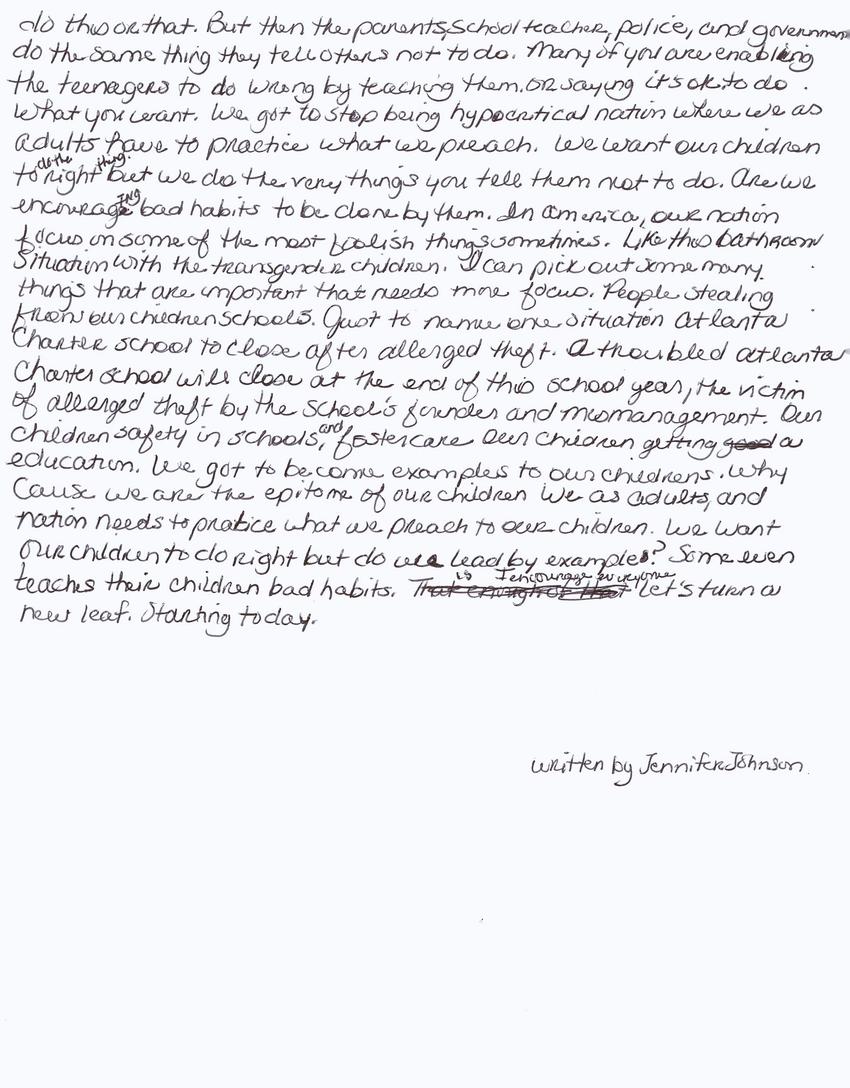 do this or that. But then the parents, school teacher, police, and government
do the same thing they tell others not to do. Many of you are enabling
the teenagers to do wrong by teaching them. or saying it's ok to do.
What you want. We got to stop being hypocritical nation where we as
adults have to practice what we preach. We want our children
to do the right thing. But we do the very things you tell them not to do. Are we
encourageing bad habits to be done by them. In America, our nation
focus on some of the most foolish things sometimes. Like this bathroom
Situation with the transgender children. I can pick out some many
things that are important that needs more focus. People stealing
from our children schools. Just to name one situation Atlanta
Charter school to close after allerged theft. A troubled atlanta
Charter school will close at the end of this school year, the victim
of allerged theft by the school's founder and mismanagement. Our
children safety in schools, and fostercare Our children getting good a
education. We got to become examples to our childrens. Why
Cause we are the epitome of our children We as adults, and
nation needs to pratice what we preach to our children. We want
our children to do right but do we lead by examples? Some even
teaches their children bad habits. is I encourage everyone let's turn a
new leaf. Starting today.
written by Jennifer Johnson